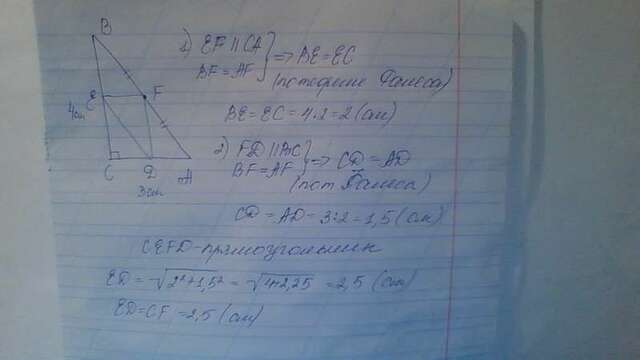 B
E
F
4см
C
D
A
3см
1) EF || CA
BF = AF } => BE = EC
(по теореме Фалеса)
BE = EC = 4:2 = 2 (см)
2) FD || BC
BF = AF } => CD = AD
(по т Фалеса)
CD = AD = 3:2 = 1,5 (см)
CEFD - прямоугольник
ED = √2²+1,5² = √4+2,25 = 2,5 (см)
ED = CF = 2,5 (см)